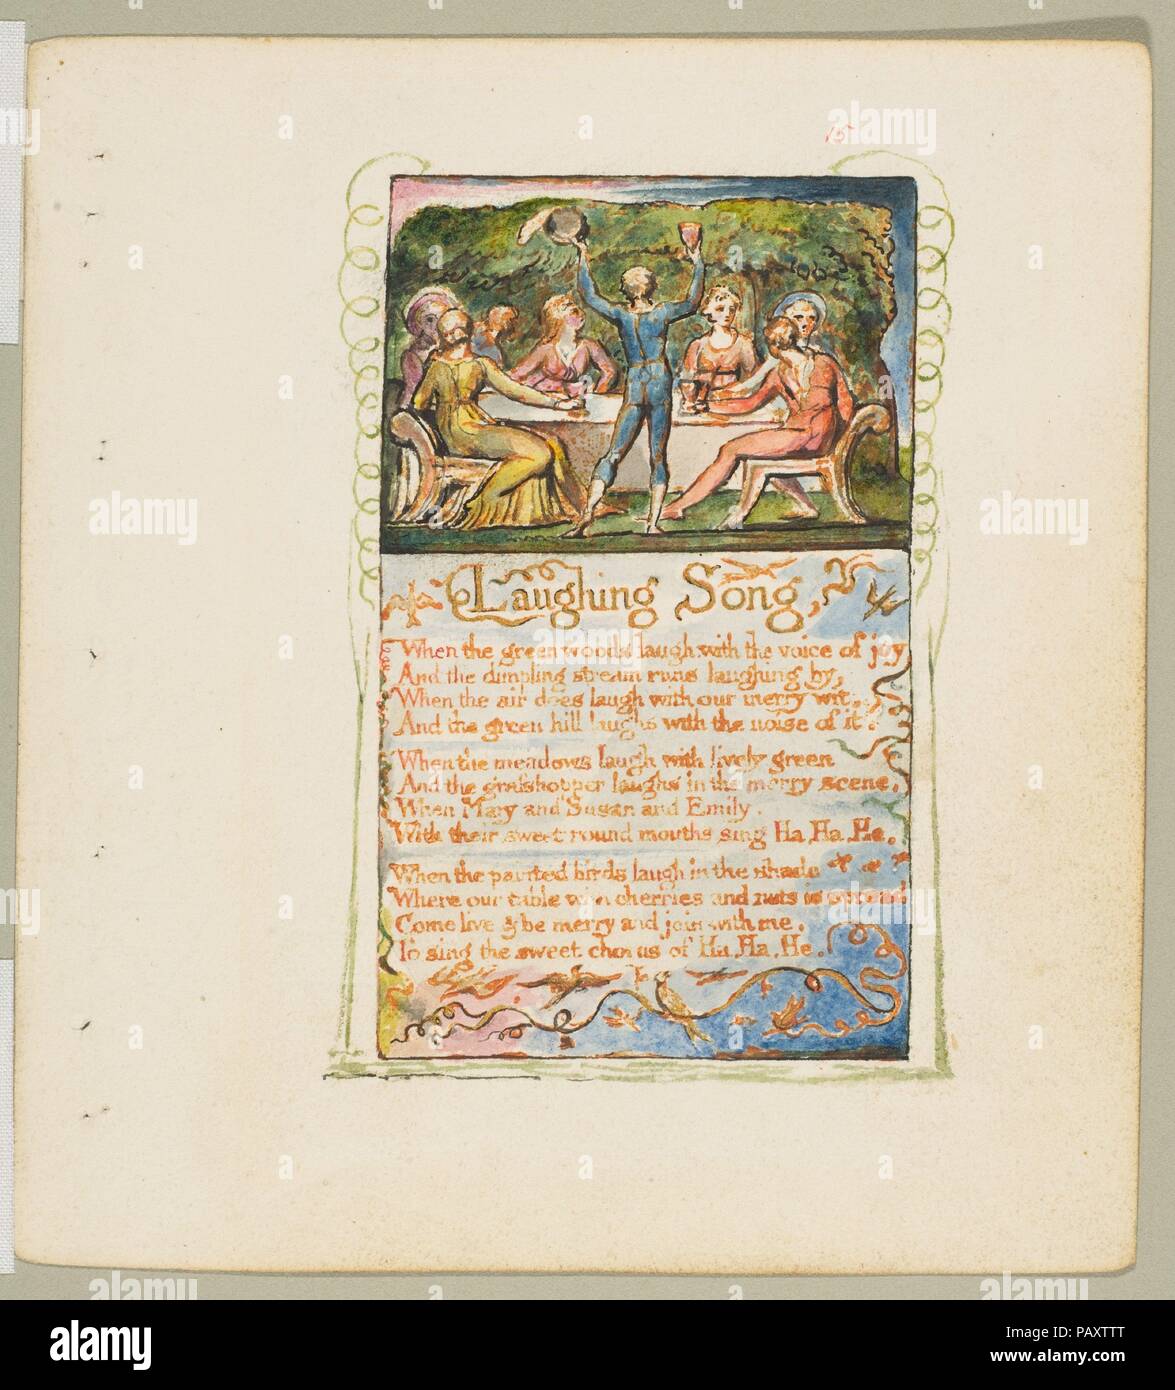 15
Laughing Song,
When the green woods laugh with the voice of joy
And the dimpling stream runs laughing by,
When the air does laugh with our merry wit,
And the green hill laughs with the noise of it.
When the meadows laugh with lively green
And the grasshopper laughs in the merry scene,
When Mary and Susan and Emily,
With their sweet round mouths sing Ha, Ha, He.
When the painted birds laugh in the shade
Where our table with cherries and nuts is spread
Come live & be merry and join with me,
To sing the sweet chorus of Ha, Ha, He.
alamy
Image ID: PAXTTT
www.alamy.com